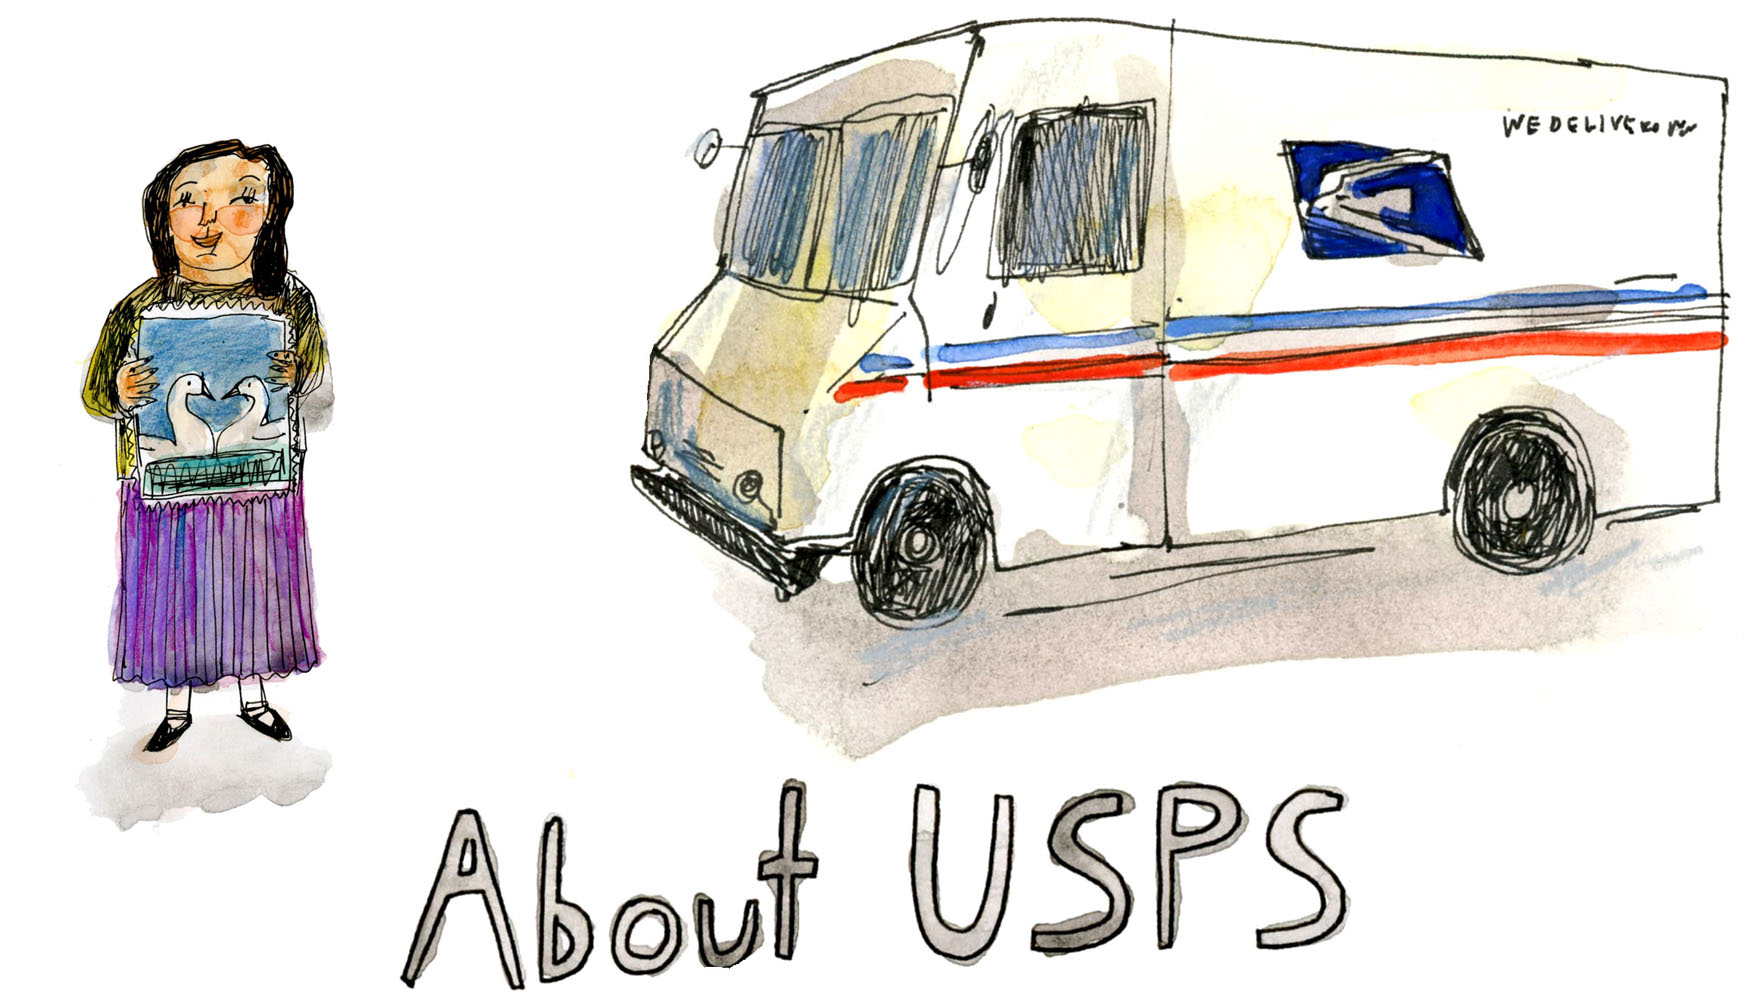 WE DELIVER
About USPS